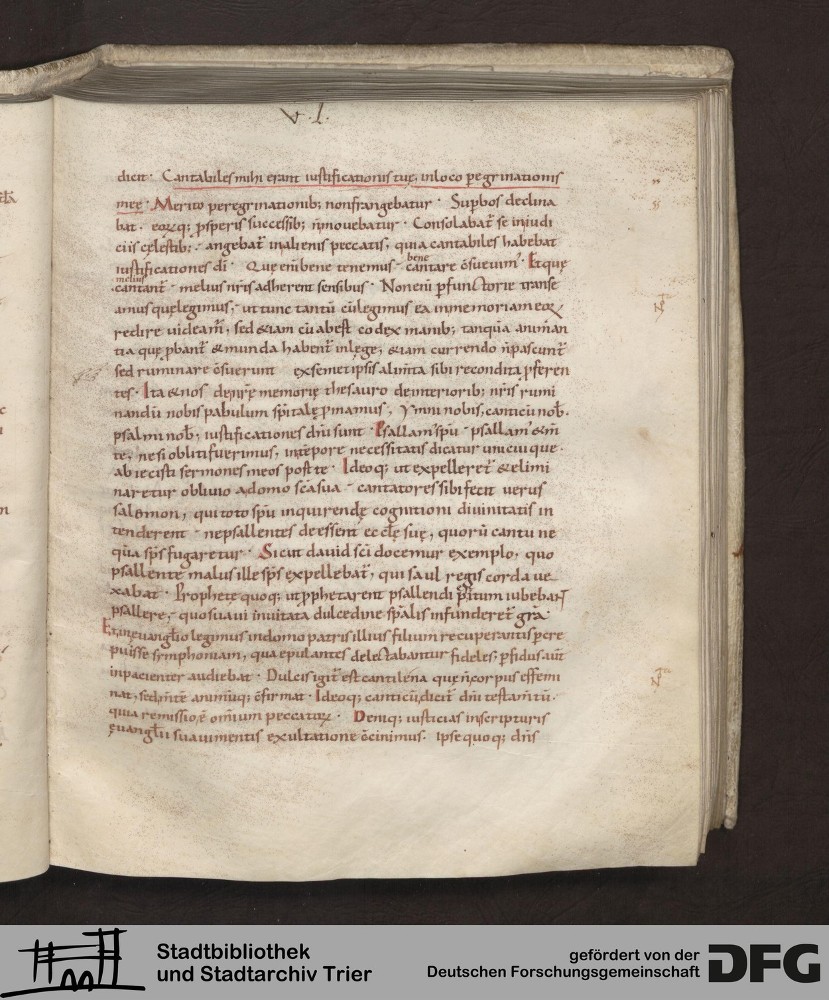 v. l.
dicit · Cantabiles mihi erant iustificationis tuę, in loco peregrinationis
meę · Merito peregrinationib; non frangebatur · Supbos declina
bat · psperis successib; n̄ movebatur · Consolabat̄ se in iudi
ciis cęlestib; · angebat̄ in alienis peccatis, quia cantabiles habebat
bene
iustificationes di · Quę eni bene tenemus cantare ōsuevim᾽ · Et quę
melius
cantant̄ melius nr̄is adherent sensibus · Non eni pfunctorie transe
amus quę legimus, ut tunc tantū cū legimus ea in memoriam eoꝝ
redire videam̄, sed &iam cū abest codex manib; tanquā animan
tia quę pbant̄ & munda habent̄ in lege, &iam currendo n̄ pascunt̄
sed ruminare ōsverunt ex semetipsis alim̄ta sibi recondita pferen
tes · Ita & nos de nr̄ę memorię thesauro de interiorib; nr̄is rumi
nandū nobis pabulum spitalę pmamus, Ymni nobis, canticū nob̄.
psalmi nob̄, iustificationes dni sunt · Psallam spu psallam & m̄
te, ne si obliti fuerimus, in tēpore necessitatis dicatur unicuique ·
abiecisti sermones meos post te · Ideoq; ut expelleret̄ & elimi
naretur oblivio a domo sca sua cantatores sibi fecit verus
salomon, qui toto spu inquirendę cognitioni divinitatis in
tenderent ne psallentes deessent ęcclę suę, quorū cantu ne
qūa sps fugaretur · Sicut david sci docemur exemplo, quo
psallente malus ille sps expellebat̄, qui saul regis corda ve
xabat · Prophetę quoq; ut pphetarent psallendi pitum iubebant
psallere, quo suavi invitata dulcedine spalis infunderet̄ gra ·
Et in evanglio legimus in domo patris illius filium recuperantis pcre
puisse symphoniam, qua epulantes delectabantur fideles; pfidus aut̄
inpacienter audiebat · Dulcis igit̄ est cantilena quę n̄ corpus effemi
nat, sed m̄tē animūq; ōfirmat · Ideoq; canticū dicit̄ dni testam̄tū ·
quia remissio ē omium peccatoꝝ · Deniq; iusticias in scripturis
ęvanglii suavi mentis exultatione ōcinimus. ipse quoq; dn̄s
Stadtbibliothek
und Stadtarchiv Trier
gefördert von der
Deutschen Forschungsgemeinschaft
DFG